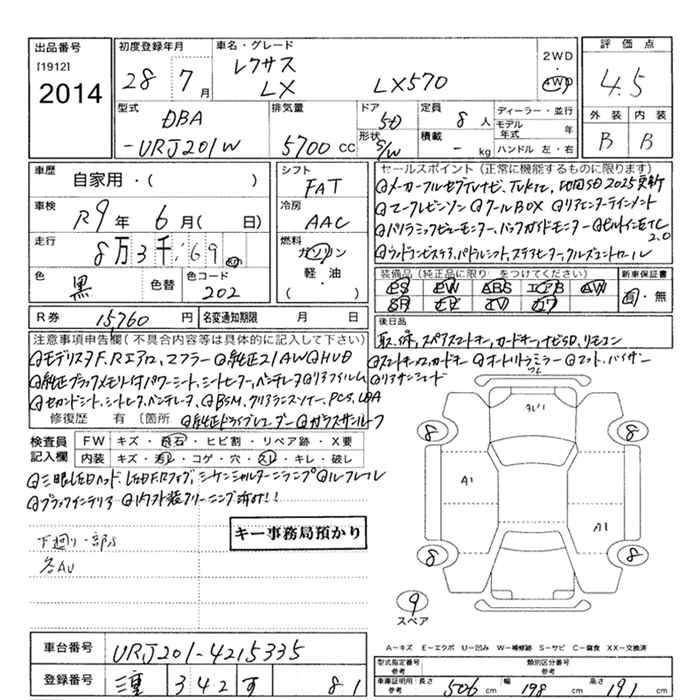 出品番号
[1912]
2014
初度登録年月
28 7 月
車名・グレード
レクサス
LX LX570
2WD
4WD
評価点
4.5
外装 内装
B B
型式
DBA
-URJ201W
排気量
5700 cc
ドア
5D
形状
S/W
定員
8 人
積載
- kg
ディーラー・並行
モデル年式 年
ハンドル 左・右
車歴
自家用・( )
車検
R9年 6月( 日)
走行
8万3千169
色
黒
色替
色コード
202
シフト
FAT
冷房
AAC
燃料
ガソリン
軽・油
( )
セールスポイント(正常に機能するものに限ります)
メーカーフルセグTVナビ、TVキャンセ、地図SD2025更新
マークレビンソン クールBOX リアエンターテインメント
パノラミックビューモニター、バックガイドモニター ビルトインETC2.0
ウッドコンビステア、パドルシフト、ステアヒーター、クルーズコントロール
装備品(純正品に限り○をつけてください)
PS PW ABS エアB AW
SR カワ TV ナビ
新車保証書
有・無
R券 15,760 円
名変通知期限 月 日
後日品
取、保、スペアスマートキー、カードキー、ナビSD、リモコン
スマートキー2、カードキー オートリトラミラー マット、バイザー
リアサンシェード
注意事項申告欄(不具合内容等は具体的に記入して下さい)
モデリスタF.Rエアロ、マフラー 純正21AW HUD
純正ブラックメモリー付パワーシート、シートヒーター、ベンチレータ リアフィルム
セカンドシート、シートヒーター、ベンチレータ、BSM、クリアランスソナー、PCS、LDA
修復歴 有 〔箇所 純正ドライブレコーダー ガラスサンルーフ
検査員
記入欄
FW キズ・飛石・ヒビ割・リペア跡・X要
内装 キズ・汚レ・コゲ・穴・スレ・キレ・破レ
三眼LEDヘッド、LEDF.Rフォグ、シーケンシャルターンランプ ルーフレール
ブラックインテリア 内外装クリーニング済み!!
キー事務局預かり
下廻り一部S
各AU
AU1
8 8
A1
A1
8 8
9
スペア
A-キズ E-エクボ U-凹み W-補修跡 S-サビ C-腐食 XX-交換済
車台番号
URJ201-4215335
登録番号
三重 342 す 81
型式指定番号
参考
類別区分番号
参考
車庫証明用
参考
長さ 506 cm
幅 198 cm
高さ 191 cm